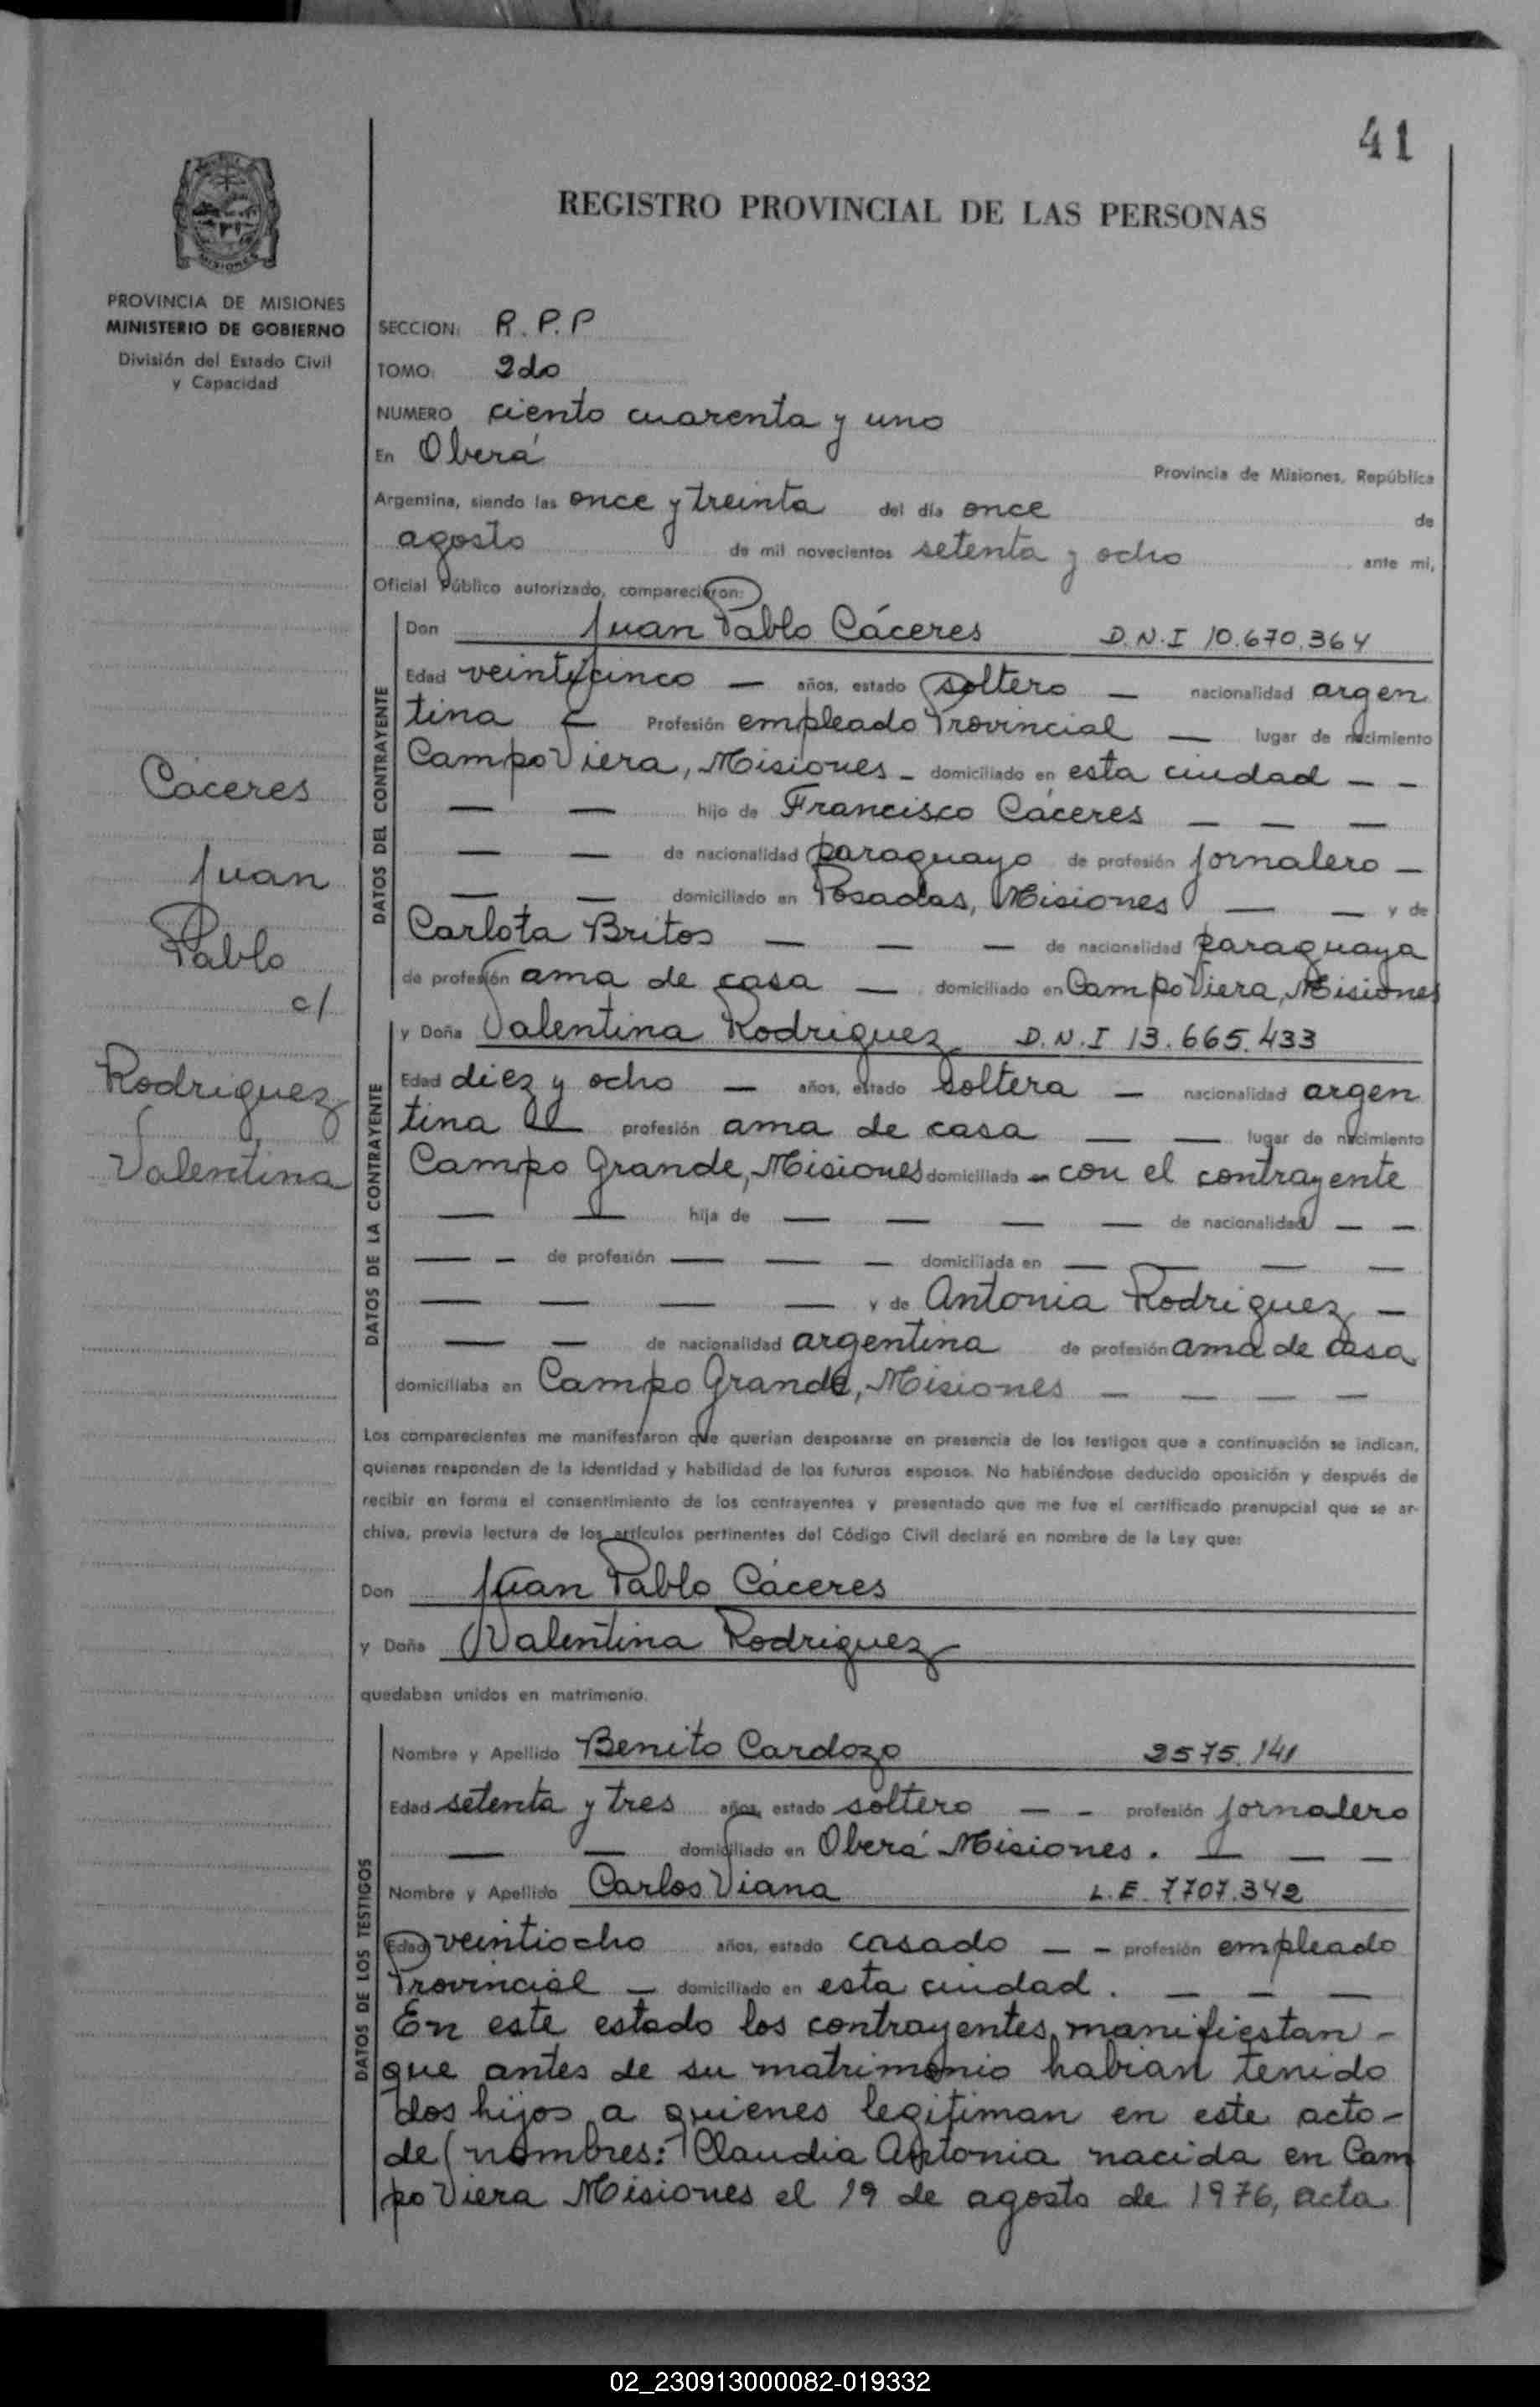 41
REGISTRO PROVINCIAL DE LAS PERSONAS
MISIONES
PROVINCIA DE MISIONES
MINISTERIO DE GOBIERNO
División del Estado Civil
y Capacidad
SECCION: R.P.P
TOMO: 2do
NUMERO ciento cuarenta y uno
En Oberá Provincia de Misiones, República
Argentina, siendo las once y treinta del día once de
agosto de mil novecientos setenta y ocho ante mi,
Oficial Público autorizado, comparecieron:
Cáceres
Juan
Pablo
c/
Rodriguez
Valentina
DATOS DEL CONTRAYENTE
Don Juan Pablo Cáceres D.N.I 10.670.364
Edad veinticinco — años, estado soltero — nacionalidad argen
tina — Profesión empleado Provincial — lugar de nacimiento
Campo Viera, Misiones - domiciliado en esta ciudad - -
— — hijo de Francisco Cáceres — — —
— — de nacionalidad paraguayo de profesión jornalero —
— — domiciliado en Posadas, Misiones — — y de
Carlota Britos — — — de nacionalidad paraguaya
de profesión ama de casa — domiciliado en Campo Viera, Misiones
DATOS DE LA CONTRAYENTE
y Doña Valentina Rodriguez D.N.I 13.665.433
Edad diez y ocho — años, estado soltera — nacionalidad argen
tina — profesión ama de casa — — lugar de nacimiento
Campo Grande, Misiones domiciliada en con el contrayente
— — hija de — — — — de nacionalidad — —
— - de profesión — — — domiciliada en — — — —
— — — — y de Antonia Rodriguez —
— — de nacionalidad argentina de profesión ama de casa
domiciliaba en Campo Grande, Misiones — — — —
Los comparecientes me manifestaron que querían desposarse en presencia de los testigos que a continuación se indican,
quienes responden de la identidad y habilidad de los futuros esposos. No habiéndose deducido oposición y después de
recibir en forma el consentimiento de los contrayentes y presentado que me fue el certificado prenupcial que se ar-
chiva, previa lectura de los artículos pertinentes del Código Civil declaré en nombre de la Ley que:
Don Juan Pablo Cáceres
y Doña Valentina Rodriguez
quedaban unidos en matrimonio.
DATOS DE LOS TESTIGOS
Nombre y Apellido Benito Cardozo 2575.141
Edad setenta y tres años, estado soltero — - profesión jornalero
— — domiciliado en Oberá Misiones. — — —
Nombre y Apellido Carlos Viana L.E. 7707.342
Edad veintiocho años, estado casado — - profesión empleado
Provincial — domiciliado en esta ciudad. — — —
En este estado los contrayentes manifiestan -
que antes de su matrimonio habian tenido
dos hijos a quienes legitiman en este acto -
de nombres: Claudia Antonia nacida en Cam
po Viera Misiones el 19 de agosto de 1976, acta
02_230913000082-019332